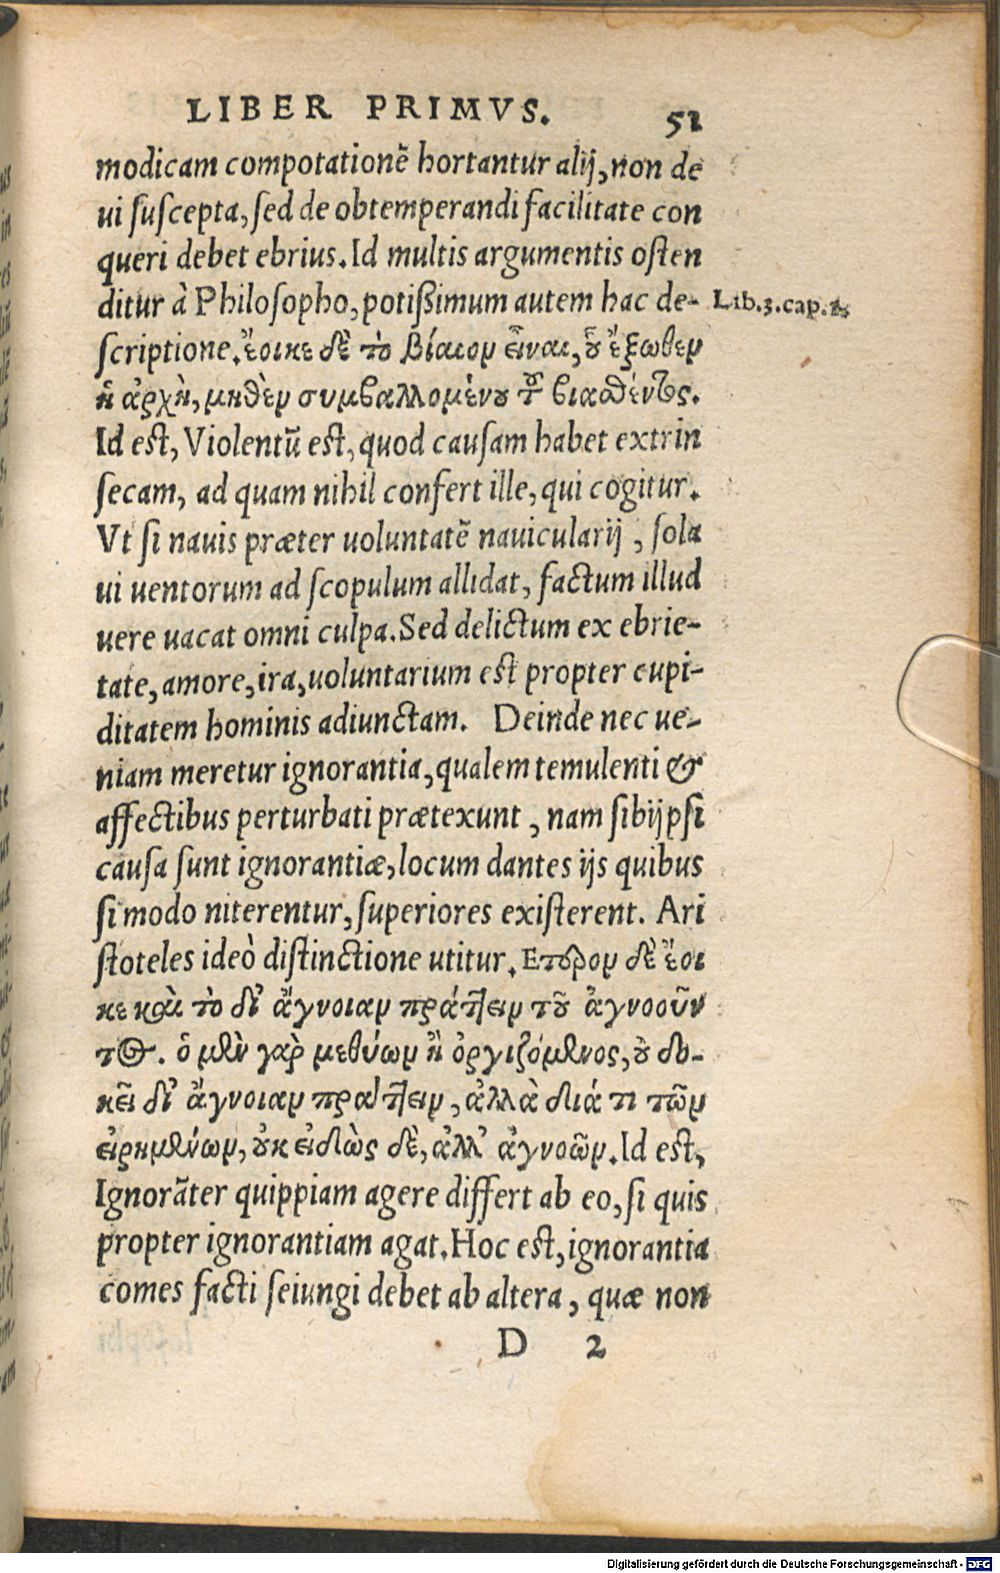 LIBER PRIMVS. 51
modicam compotationē hortantur alij, non de
ui suscepta, sed de obtemperandi facilitate con
queri debet ebrius. Id multis argumentis osten
ditur à Philosopho, potißimum autem hac de- Lib.3.cap.1.
scriptione. ἔοικε δὲ τὸ βίαιον εἶναι, ȣ̓͂ ἔξωθεν
ἡ ἀρχὴ, μηθὲν συμβαλλομένȣ τȣ͂ βιαθέντος.
Id est, Violentū est, quod causam habet extrin
secam, ad quam nihil confert ille, qui cogitur.
Vt si nauis præter uoluntatē nauicularij, sola
ui uentorum ad scopulum allidat, factum illud
uere uacat omni culpa. Sed delictum ex ebrie-
tate, amore, ira, uoluntarium est propter cupi-
ditatem hominis adiunctam. Deinde nec ue-
niam meretur ignorantia, qualem temulenti &
affectibus perturbati prætexunt, nam sibijpsi
causa sunt ignorantiæ, locum dantes ijs quibus
si modo niterentur, superiores existerent. Ari
stoteles ideò distinctione utitur. Ετερον δὲ ἔοι
κε καὶ τὸ δι' ἄγνοιαν πράττειν τοῦ ἀγνοοῦν
τος. ὁ μὲν γὰρ μεθύων ἢ ὀργιζόμενος, ȣ̓ δο-
κεῖ δι' ἄγνοιαν πράττειν, ἀλλὰ διά τι τῶν
εἰρημένων, ȣ̓κ εἰδὼς δὲ, ἀλλ' ἀγνοῶν. Id est,
Ignorāter quippiam agere differt ab eo, si quis
propter ignorantiam agat. Hoc est, ignorantia
comes facti seiungi debet ab altera, quæ non
D 2
Digitalisierung gefördert durch die Deutsche Forschungsgemeinschaft - DFG